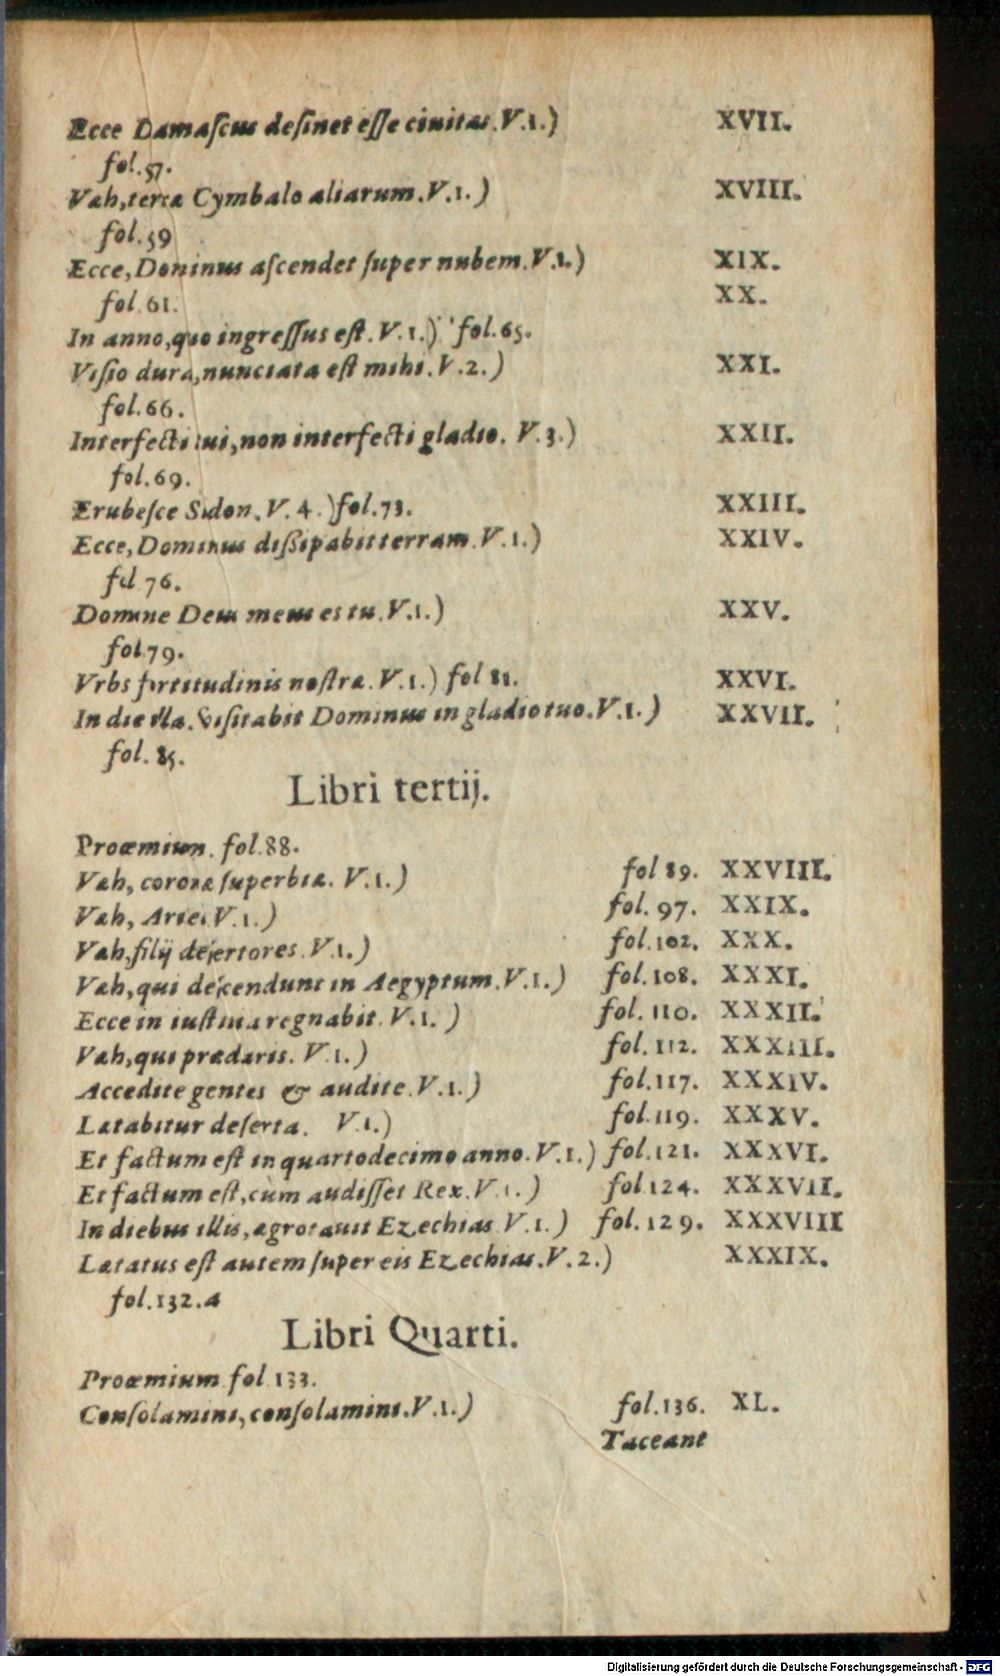 Ecce Damaſcus deſinet eſſe ciuitas. V. 1.) XVII.
fol. 57.
Vah, terræ Cymbalo aliarum. V. 1.) XVIII.
fol. 59
Ecce, Dominus aſcendet ſuper nubem. V. 1.) XIX.
fol. 61. XX.
In anno, quo ingreſſus eſt. V. 1.) fol. 65.
Viſio dura, nunciata eſt mihi. V. 2.) XXI.
fol. 66.
Interfecti tui, non interfecti gladio. V. 3.) XXII.
fol. 69.
Erubeſce Sidon. V. 4.) fol. 73. XXIII.
Ecce, Dominus diſsipabit terram. V. 1.) XXIV.
fol 76.
Domine Deus meus es tu. V. 1.) XXV.
fol. 79.
Vrbs fortitudinis noſtræ. V. 1.) fol 81. XXVI.
In die illa. viſitabit Dominus in gladio tuo. V. 1.) XXVII.
fol. 85.
Libri tertij.
Proœmium. fol. 88.
Vah, coronæ ſuperbiæ. V. 1.) fol 89. XXVIII.
Vah, Ariel V. 1.) fol. 97. XXIX.
Vah, filij deſertores. V. 1.) fol. 102. XXX.
Vah, qui deſcendunt in Aegyptum. V. 1.) fol. 108. XXXI.
Ecce in iuſtitia regnabit. V. 1.) fol. 110. XXXII.
Vah, qui prædaris. V. 1.) fol. 112. XXXIII.
Accedite gentes & audite. V. 1.) fol. 117. XXXIV.
Lætabitur deſerta. V. 1.) fol. 119. XXXV.
Et factum eſt in quartodecimo anno. V. 1.) fol. 121. XXXVI.
Et factum eſt, cùm audiſſet Rex. V. 1.) fol. 124. XXXVII.
In diebus illis, ægrotauit Ezechias V. 1.) fol. 129. XXXVIII
Lætatus eſt autem ſuper eis Ezechias. V. 2.) XXXIX.
fol. 132. a
Libri Quarti.
Proœmium fol. 133.
Conſolamini, conſolamini. V. 1.) fol. 136. XL.
Taceant
Digitalisierung gefördert durch die Deutsche Forschungsgemeinschaft - DFG